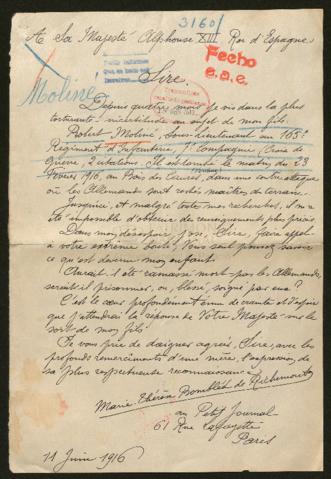 3160
A Sa Majesté Alphonse XIII Roi d'Espagne
Fecho
e.a.e.
Sire,
Moliné
Depuis quatre mois je vis dans la plus
torturante incertitude au sujet de mon fils.
Robert Moliné, Sous-lieutenant au 165e
Régiment d'Infanterie, 1e Compagnie, (Croix de
Guerre, 2 citations. Il est tombé le matin du 23
Février 1916, au Bois des Caures, dans une contre attaque
où les Allemands sont restés maîtres du terrain.
Jusqu'ici, et malgré toutes mes recherches, il m'a
été impossible d'obtenir de renseignements plus précis.
Dans mon désespoir, j'ose, Sire, faire appel
à votre extrême bonté. Vous seul pouvez savoir
ce qu'est devenu mon enfant.
Aurait-il été ramassé mort par les Allemands
serait-il prisonnier, ou, blessé, soigné par eux?
C'est le cœur profondément ému de crainte et d'espoir
que j'attendrai la réponse de Votre Majesté sur le
sort de mon fils.
Je vous prie de daigner agréer, Sire, avec les
profonds remerciements d'une mère, l'expression de
sa plus respectueuse reconnaissance.
Marie Thérèse Bomblet de Richemont
au Petit Journal
61 Rue Lafayette
Paris
11 Juin 1916